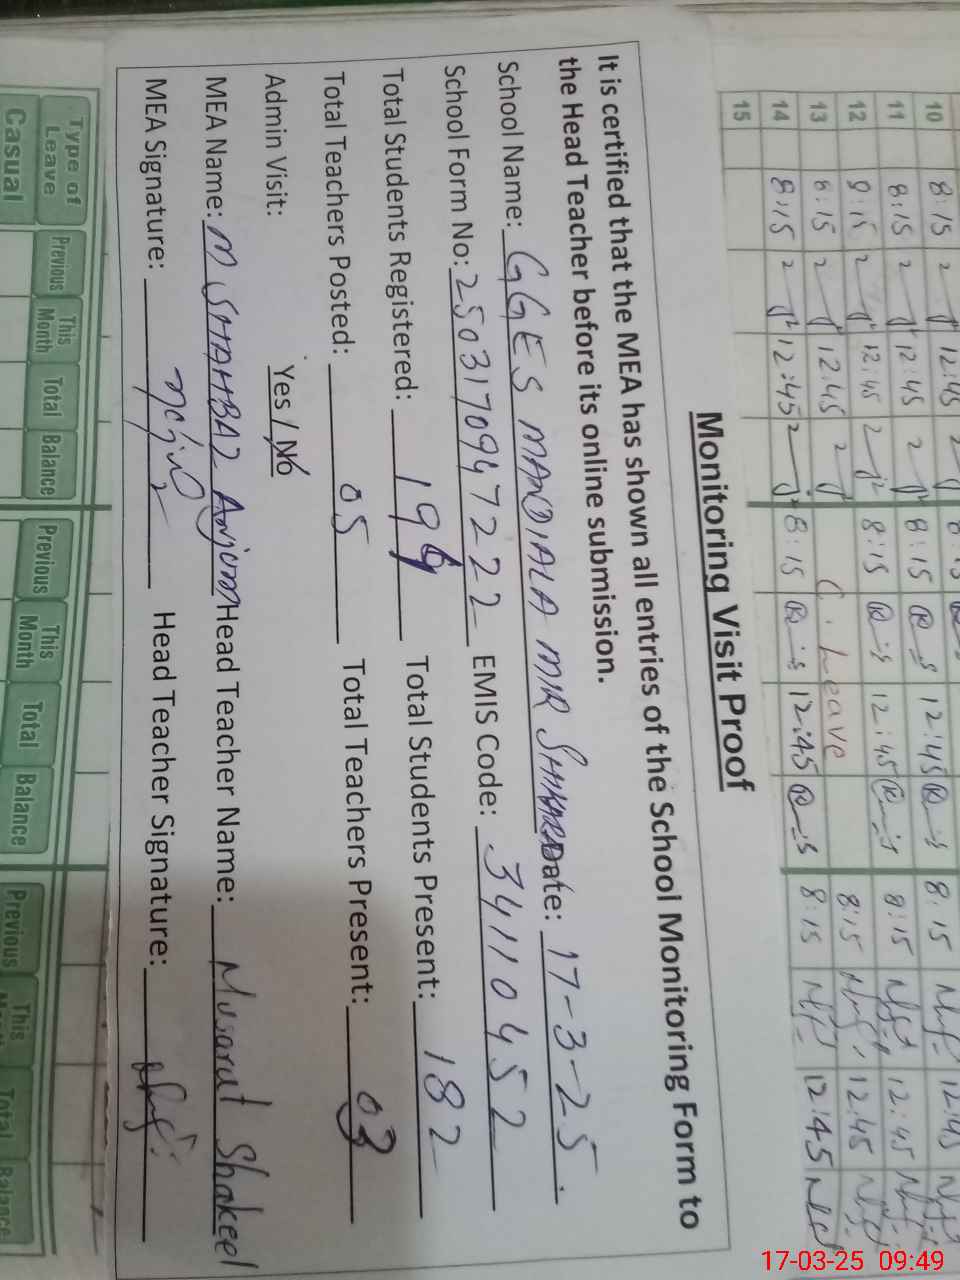 10 8:15 12:45 8:15 12:45 8:15 12:45
11 8:15 12:45 8:15 12:45 8:15 12:45
12 8:15 12:45 8:15 12:45 8:15 12:45
13 8:15 12:45 C. Leave 8:15 12:45
14 8:15 12:45 8:15 12:45 8:15 12:45
15
Monitoring Visit Proof
It is certified that the MEA has shown all entries of the School Monitoring Form to
the Head Teacher before its online submission.
School Name: GGES MANDIALA MIR Date: 17-3-25
School Form No: 2503170947222 EMIS Code: 34110452
Total Students Registered: Total Students Present: 182
Total Teachers Posted: 05 Total Teachers Present: 03
Admin Visit: Yes / No
MEA Name: M SHAHBAZ Anjum Head Teacher Name: Musarat Shakeel
MEA Signature: Head Teacher Signature:
Type of Leave Previous This Month Total Balance Previous This Month Total Balance Previous This Total Balance
Casual
17-03-25 09:49